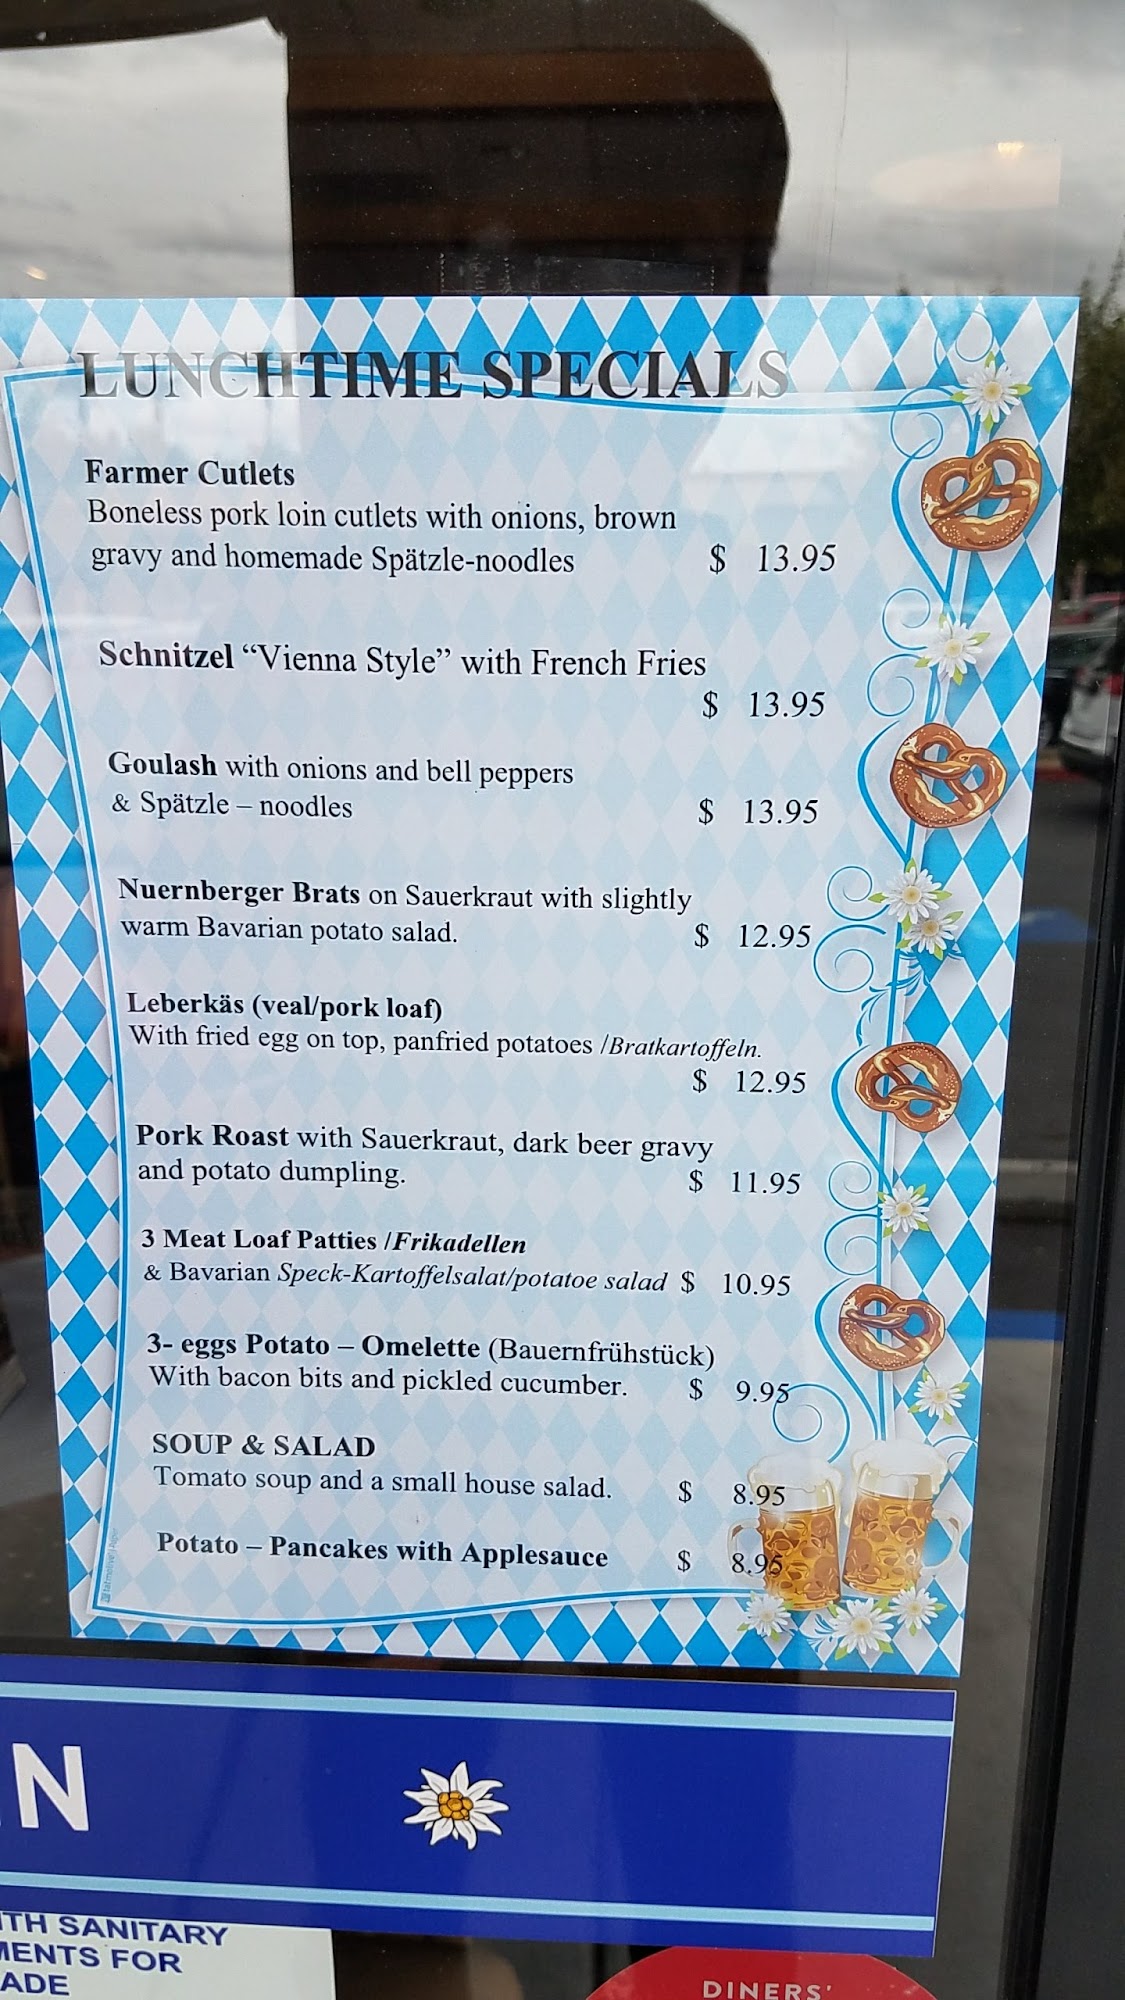 LUNCHTIME SPECIALS
Farmer Cutlets
Boneless pork loin cutlets with onions, brown
gravy and homemade Spätzle-noodles $ 13.95
Schnitzel “Vienna Style” with French Fries
$ 13.95
Goulash with onions and bell peppers
& Spätzle – noodles $ 13.95
Nuernberger Brats on Sauerkraut with slightly
warm Bavarian potato salad. $ 12.95
Leberkäs (veal/pork loaf)
With fried egg on top, panfried potatoes /Bratkartoffeln.
$ 12.95
Pork Roast with Sauerkraut, dark beer gravy
and potato dumpling. $ 11.95
3 Meat Loaf Patties /Frikadellen
& Bavarian Speck-Kartoffelsalat/potatoe salad $ 10.95
3- eggs Potato – Omelette (Bauernfrühstück)
With bacon bits and pickled cucumber. $ 9.95
SOUP & SALAD
Tomato soup and a small house salad. $ 8.95
Potato – Pancakes with Applesauce $ 8.95
N
TH SANITARY
MENTS FOR
ADE
DINERS'